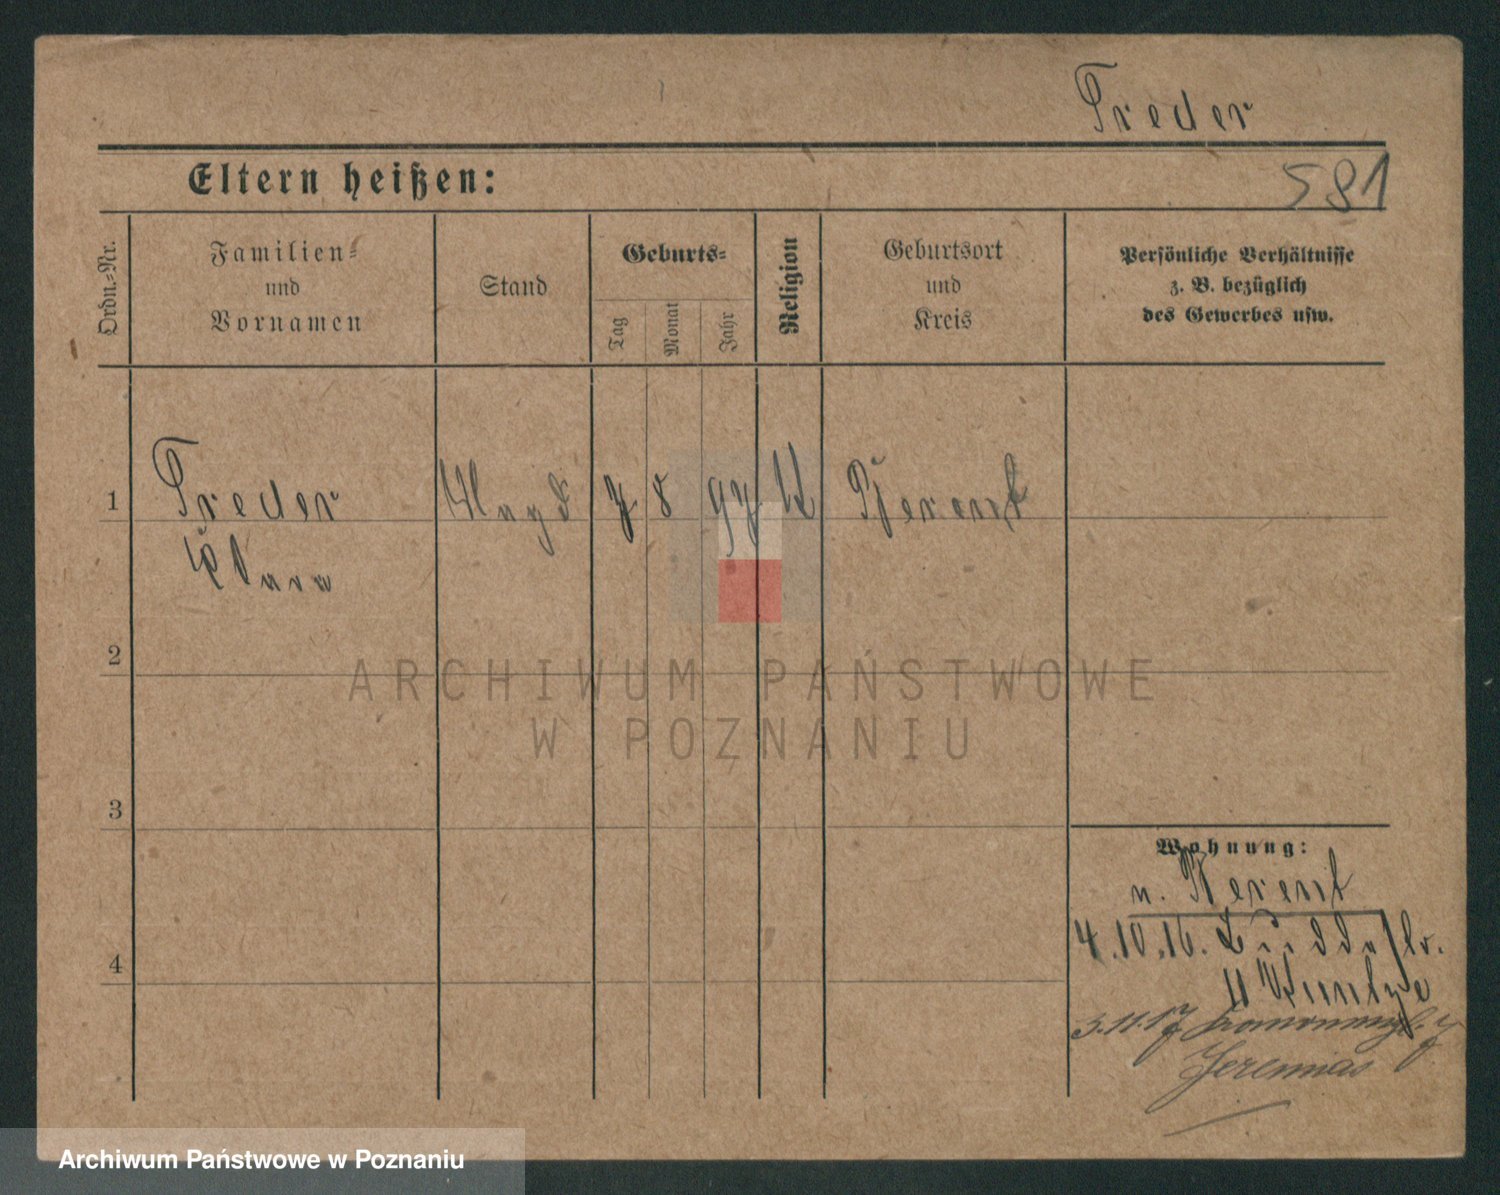 Treder
Eltern heißen:
581
Ordn.-Nr.
Familien-
und
Vornamen
Stand
Geburts-
Tag
Monat
Jahr
Religion
Geburtsort
und
Kreis
Persönliche Verhältnisse
z. B. bezüglich
des Gewerbes usw.
1
Treder
Klara
Magd
7
8
97
k
Berent
2
ARCHIWUM PAŃSTWOWE
W POZNANIU
3
Wohnung:
v. Berent
4.10.16.
4
3.11.17
Jeremias
Archiwum Państwowe w Poznaniu